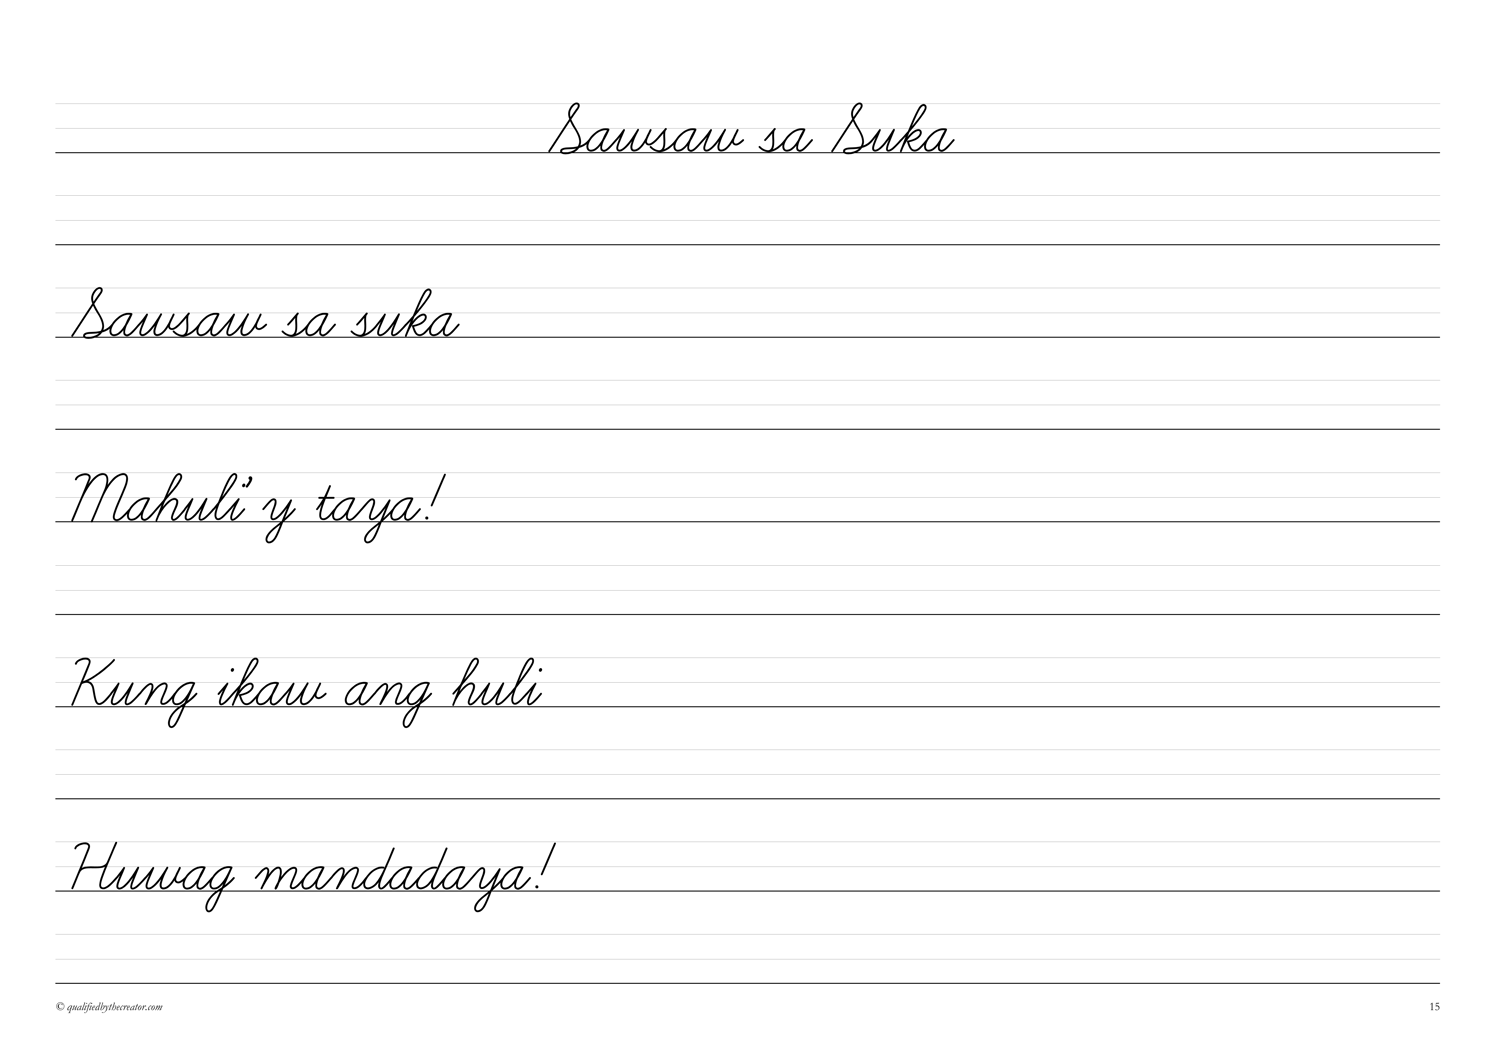 Sawsaw sa Suka
Sawsaw sa suka
Mahuli’y taya!
Kung ikaw ang huli
Huwag mandadaya!
© qualifiedbythecreator.com
15